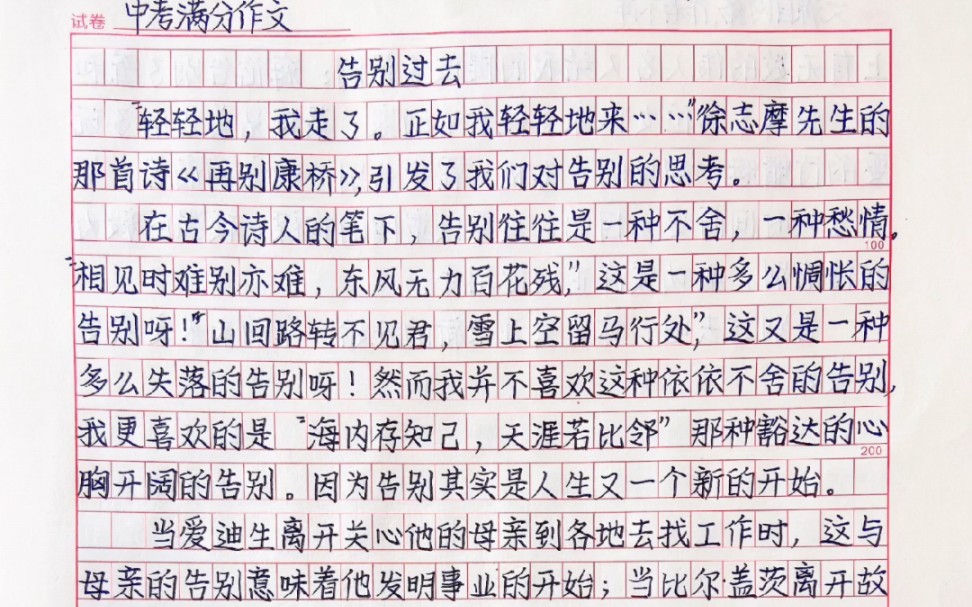 试卷 中考满分作文
告别过去
“轻轻地，我走了。正如我轻轻地来……”徐志摩先生的
那首诗《再别康桥》，引发了我们对告别的思考。
在古今诗人的笔下，告别往往是一种不舍，一种愁情。
100
“相见时难别亦难，东风无力百花残”，这是一种多么惆怅的
告别呀！“山回路转不见君，雪上空留马行处”，这又是一种
多么失落的告别呀！然而我并不喜欢这种依依不舍的告别，
我更喜欢的是“海内存知己，天涯若比邻”那种豁达的心
200
胸开阔的告别。因为告别其实是人生又一个新的开始。
当爱迪生离开关心他的母亲到各地去找工作时，这与
母亲的告别意味着他发明事业的开始；当比尔·盖茨离开故